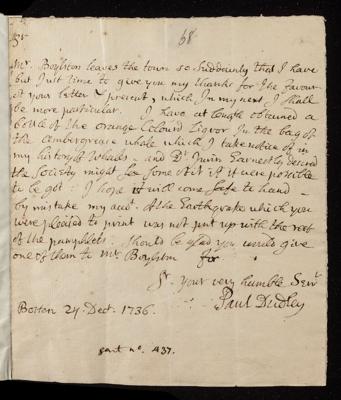 68
Sr.
Mr. Boylston leaves the town so Suddainly that I have
but Just time to give you my thanks for the favour
of your letter & present, which In my next I shall
be more particular. I have at length obtained a
bottle of the Orange Colourd Liqvor In the bag of
the Ambergreace whale which I take notice of in
my history of Whales, and Dr. Jurin Earnestly desired
the Society might See some of it if it were possible
to be got: I hope it will come Safe to hand
by mistake my acct. of the Earthqvake which you
were pleased to print was not put up with the rest
of the pamphlets. Should be glad you would give
one of them to Mr. Boylston for
Sr. Your very humble Servt
Paul Dudley
Boston 24 Dect. 1736.
437.